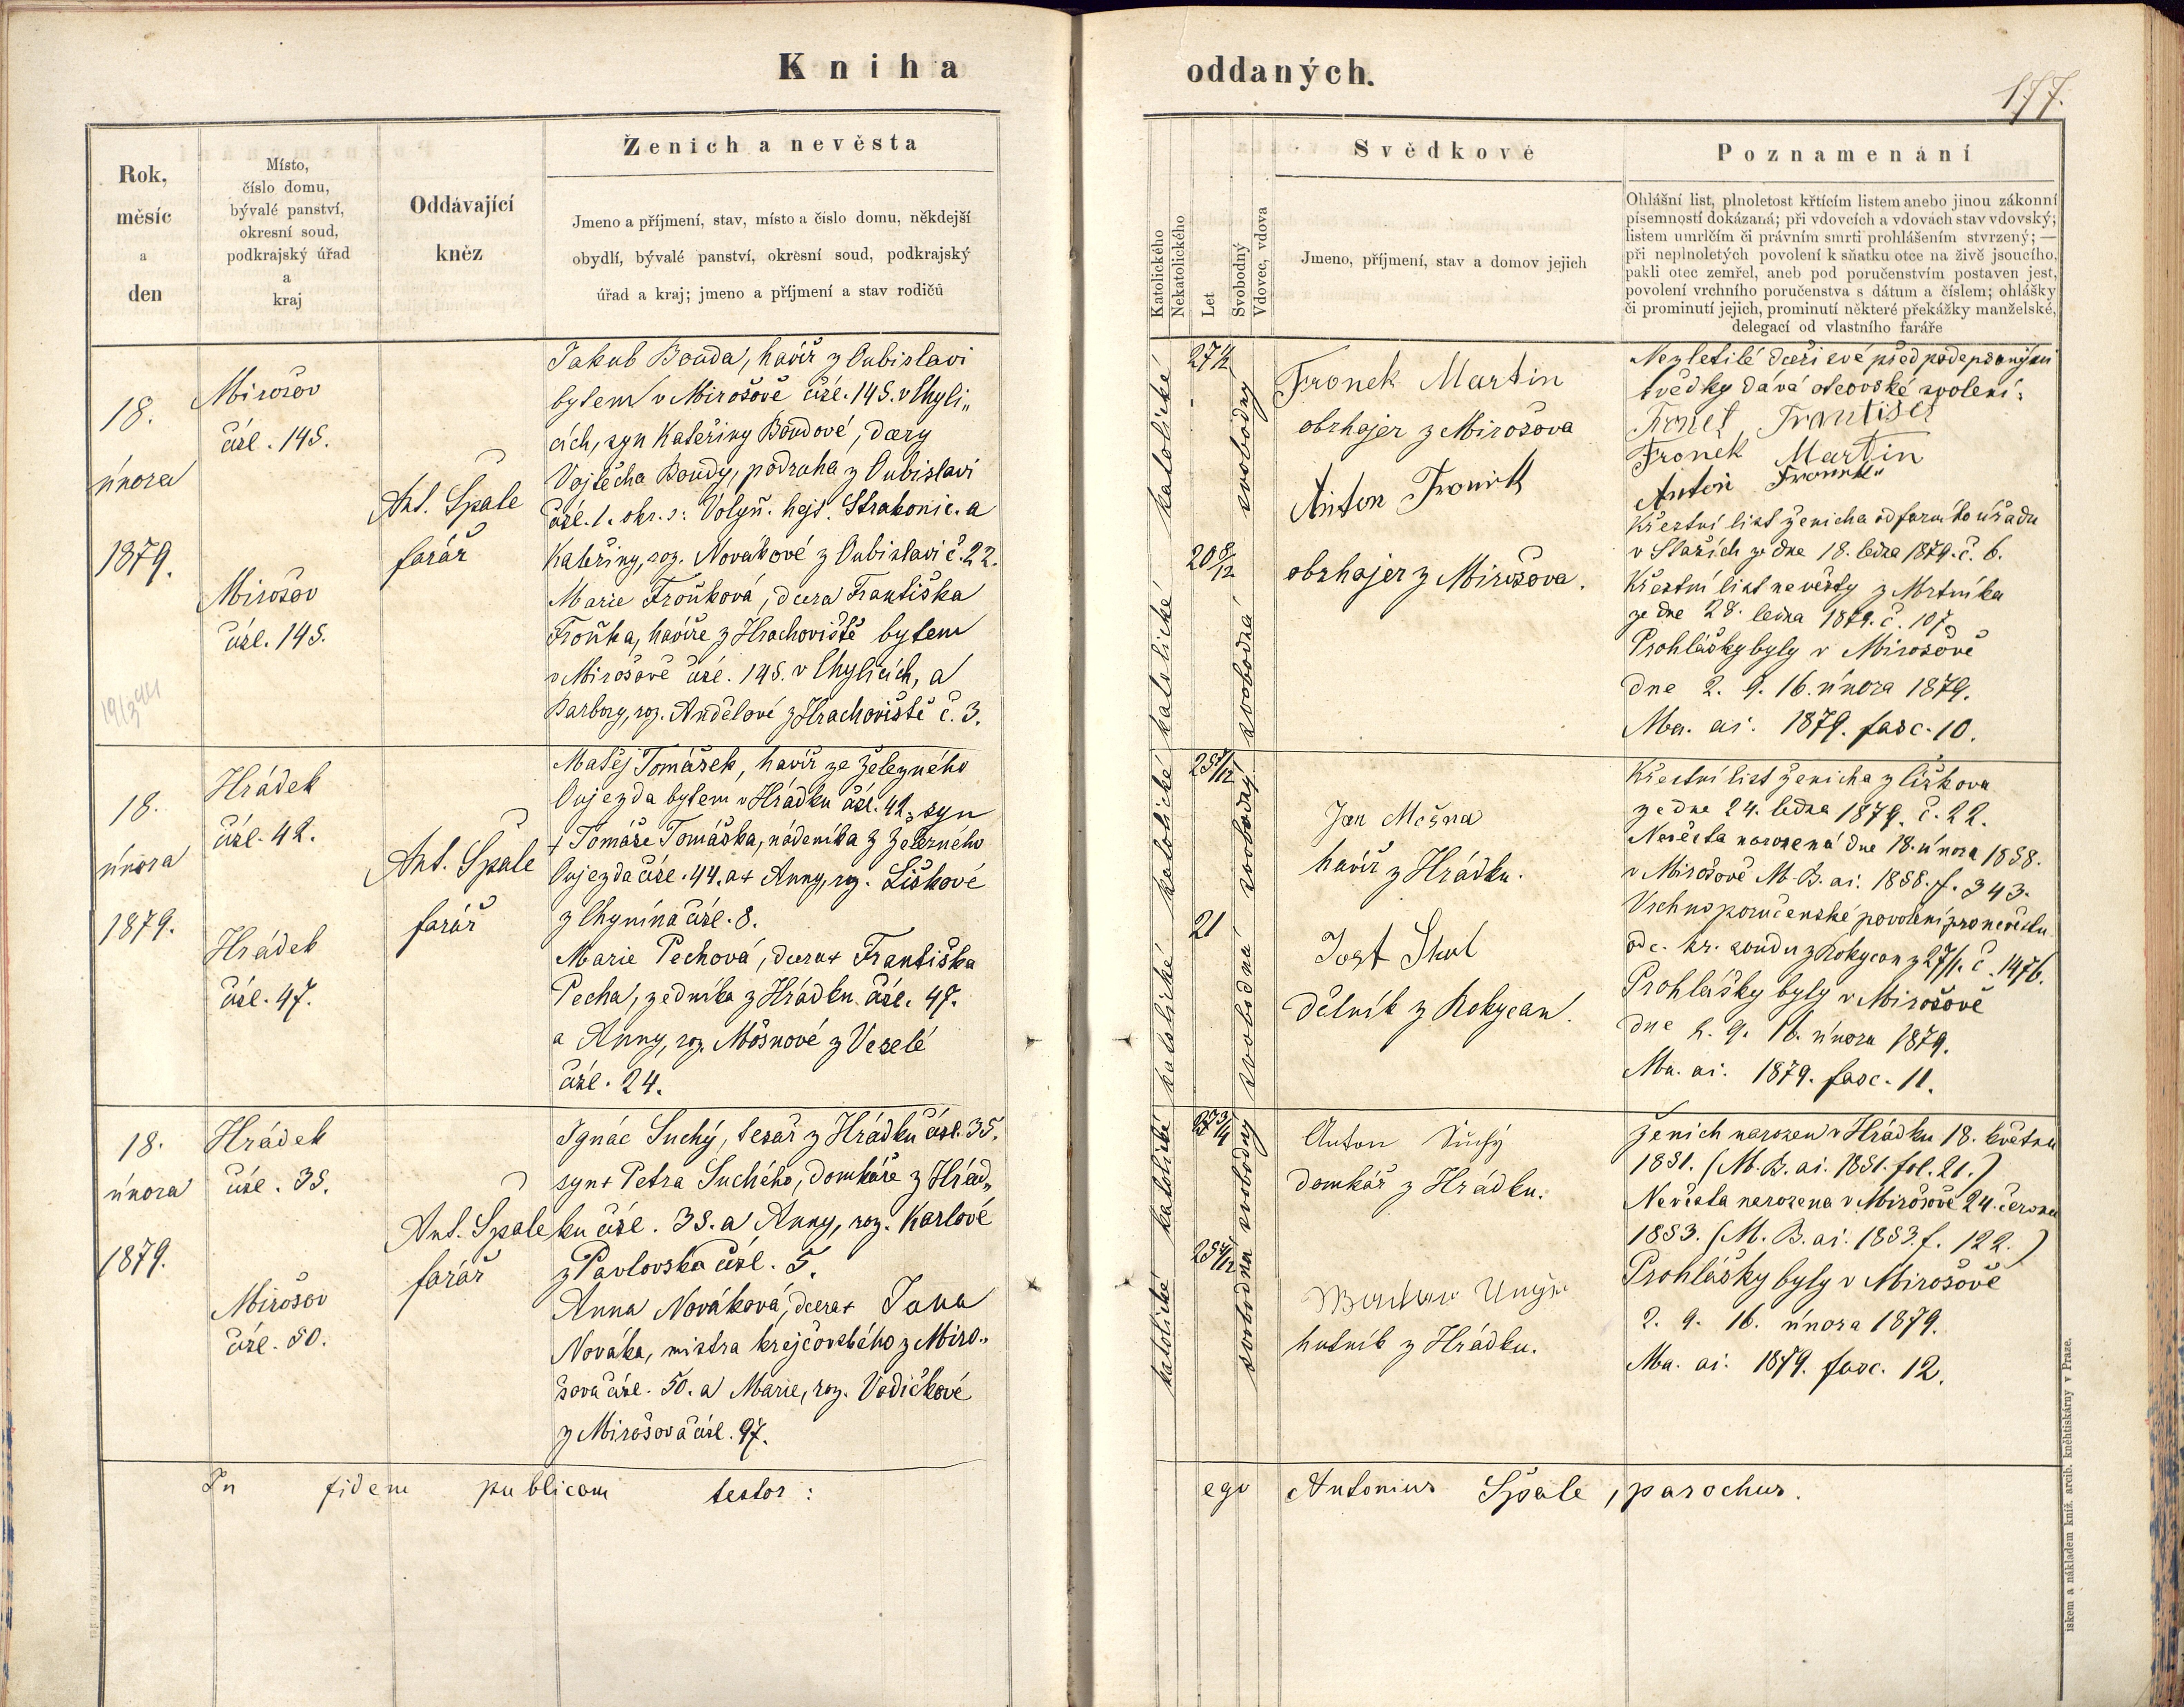 Kniha
oddaných.
177.
Rok,
měsíc
a
den
Místo,
číslo domu,
bývalé panství,
okresní soud,
podkrajský úřad
a
kraj
Oddávající
kněz
Ženich a nevěsta
Jmeno a příjmení, stav, místo a číslo domu, někdejší
obydlí, bývalé panství, okresní soud, podkrajský
úřad a kraj; jmeno a příjmení a stav rodičů
Katolického
Nekatolického
Let
Svobodný
Vdovec, vdova
Svědkové
Jmeno, příjmení, stav a domov jejich
Poznamenání
Ohlášní list, plnoletost křtícím listem anebo jinou zákonní
písemností dokázaná; při vdovcích a vdovách stav vdovský;
listem umrlčím či právním smrti prohlášením stvrzený; —
při neplnoletých povolení k sňatku otce na živě jsoucího,
pakli otec zemřel, aneb pod poručenstvím postaven jest,
povolení vrchního poručenstva s dátum a číslem; ohlášky
či prominutí jejich, prominutí některé překážky manželské,
delegací od vlastního faráře
18.
února
1879.
Mirošov
čísl. 145.
Mirošov
čísl. 145.
Ant. Spale
farář
Jakub Bouda, havíř z Oubislavi
bytem v Mirošově čísl. 145. v Chyli„
cích, syn Kateřiny Boudové, dcery
Vojtěcha Boudy, podruha z Oubislavi
čísl. 1. okr. s: Volyň. hejt. Strakonic. a
Kateřiny, roz. Novákové z Oubislavi č. 22.
Marie Froňková, dcera Františka
Froňka, havíře z Hrachoviště bytem
v Mirošově čísl. 145. v Chylicích, a
Barbory, roz. Andělové z Hrachoviště č. 3.
katolické
katolické
27 1/2
20 8/12
svobodný
svobodná
Fronek Martin
obrhajer z Mirošova
Anton Fronek
obrhajer z Mirošova.
Nezletilé dceři své před podepsanými
svědky dává otcovské svolení:
František
Fronek Martin
Anton Fronek
Křestní list ženicha od farního úřadu
v Stařích ze dne 18. ledna 1879. č. 6.
Křestní list nevěsty z Mrtníka
ze dne 28. ledna 1879. č. 107.
Prohlášky byly v Mirošově
dne 2. 9. 16. února 1879.
Ma. ai. 1879. fasc. 10.
18.
února
1879.
Hrádek
čísl. 42.
Hrádek
čísl. 47.
Ant. Spale
farář
Matěj Tomášek, havíř ze Železného
Oujezda bytem v Hrádku čísl. 42, syn
+ Tomáše Tomáška, nádeníka z Železného
Oujezda čísl. 44. a + Anny, roz. Liškové
z Chynína čísl. 8.
Marie Pechová, dcera + Františka
Pecha, zedníka z Hrádku čísl. 47.
a Anny, roz. Mošnové z Veselé
čísl. 24.
katolické
katolické
21
svobodný
svobodná
Jan Mošna
havíř z Hrádku.
dělník z Rokycan.
Křestní list ženicha z Čížkova
ze dne 24. ledna 1879. č. 22.
Nevěsta narozená dne 18. února 1858.
v Mirošově M. B. ai. 1858. f. 343.
Vrchnoporučenské povolení pro nevěstu
od c. kr. soudu z Rokycan z 27/1. č. 1476.
Prohlášky byly v Mirošově
dne 2. 9. 16. února 1879.
Ma. ai. 1879. fasc. 11.
18.
února
1879.
Hrádek
čísl. 35.
Mirošov
čísl. 50.
Ant. Spale
farář
Ignác Suchý, tesař z Hrádku čísl. 35.
syn + Petra Suchého, domkáře z Hrád„
ku čísl. 35. a Anny, roz. Karlové
z Pavlovska čísl. 5.
Anna Nováková, dcera + Jana
Nováka, mistra krejčovského z Miro„
šova čísl. 50. a Marie, roz. Vodičkové
z Mirošova čísl. 97.
katolické
katolické
27 3/4
svobodný
svobodná
Anton Suchý
domkář z Hrádku.
hutník z Hrádku.
Ženich narozen v Hrádku 18. května
1851. (M. B. ai. 1851. fol. 21.)
Nevěsta narozena v Mirošově 24. června
1853. (M. B. ai. 1853. f. 122.)
Prohlášky byly v Mirošově
2. 9. 16. února 1879.
Ma. ai. 1879. fasc. 12.
In fidem publicam testor:
ego Antonius Spale, parochus.
iskem a nákladem kníž. arcib. knihtiskárny v Praze.